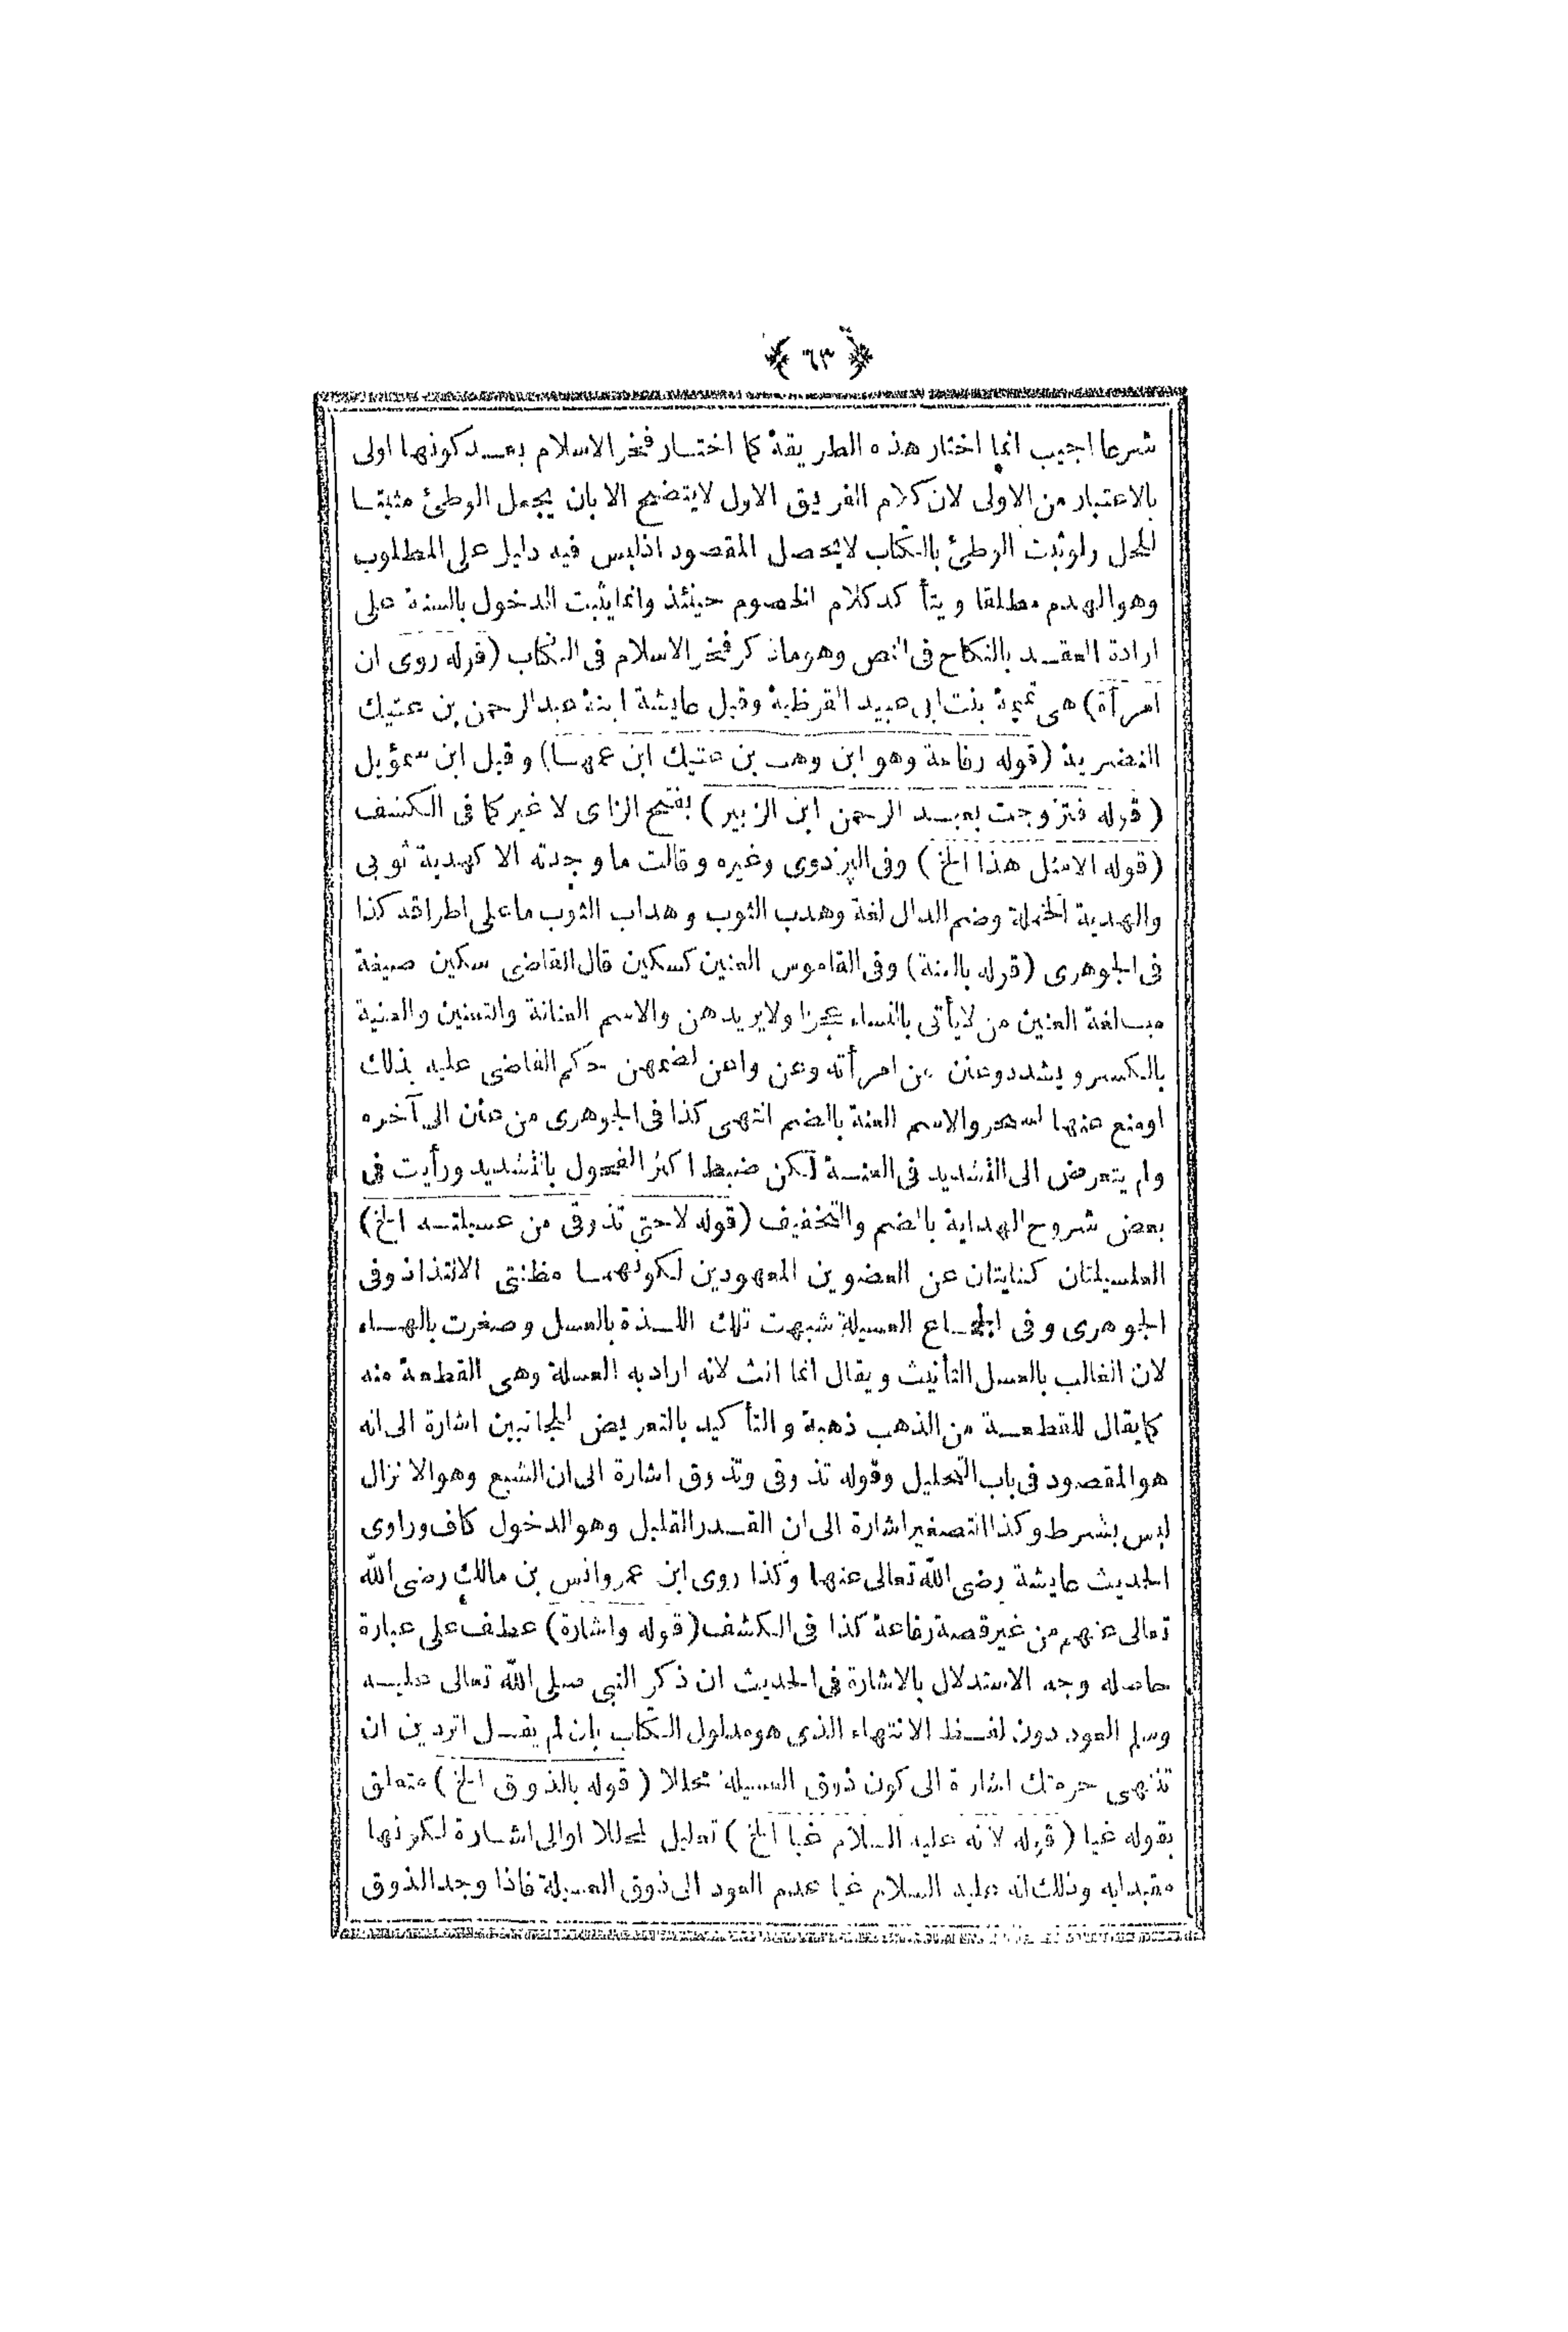 ﴿ ٦٣ ﴾
شرعا اجيب انما اختار هذه الطريقة كما اختار فخر الاسلام بعد كونها اولى
بالاعتبار من الاولى لان كلام الفريق الاول لايتضح الا بان يجعل الوطئ مثبتا
للحل ولوثبت الوطئ بالكتاب لايحصل المقصود اذليس فيه دليل على المطلوب
وهوالهدم مطلقا ويتأكد كلام الخصوم حينئذ وانمايثبت الدخول بالسنة على
ارادة العقد بالنكاح فى النص وهوماذكر فخر الاسلام فى الكتاب (قوله روى ان
امرأة) هى تميمة بنت ابى عبيد القرظية وقيل عايشة ابنة عبدالرحمن بن عتيك
النضرية (قوله رفاعة وهو ابن وهب بن عتيك ابن عمها) وقيل ابن سموئيل
(قوله فتزوجت بعبد الرحمن ابن الزبير) بفتح الزاى لا غير كما فى الكشف
(قوله الامثل هذا الخ) وفى البزدوى وغيره وقالت ماوجدته الا كهدبة ثوبى
والهدبة الخملة وضم الدال لغة وهدب الثوب وهداب الثوب ماعلى اطرافه كذا
فى الجوهرى (قوله بالعنة) وفى القاموس العنين كسكين قال القاضى سكين صيغة
مبالغة العنين من لايأتى بالنساء عجزا ولايريدهن والاسم العنانة والتعنين والعنية
بالكسر ويشدد وعنن عن امرأته وعن واعن بضمهن حكم القاضى عليه بذلك
اومنع عنها بسحر والاسم العنة بالضم انتهى كذا فى الجوهرى من عنن الى آخره
ولم يتعرض الى التشديد فى العنة لكن ضبط اكثر الفحول بالتشديد ورأيت فى
بعض شروح الهداية بالضم والتخفيف (قوله لاحتى تذوقى من عسيلته الخ)
العسيلتان كنايتان عن العضوين المعهودين لكونهما مظنتى الالتذاذ وفى
الجوهرى وفى الجماع العسيلة شبهت تلك اللذة بالعسل وصغرت بالهاء
لان الغالب بالعسل التأنيث ويقال انما انث لانه ارادبه العسلة وهى القطعة منه
كمايقال للقطعة من الذهب ذهبة والتأكيد بالتعريض للجانبين اشارة الى انه
هو المقصود فى باب التحليل وقوله تذوقى وتذوق اشارة الى ان الشبع وهوالانزال
ليس بشرط وكذا التصغير اشارة الى ان القدر القليل وهوالدخول كاف وراوى
الحديث عايشة رضى الله تعالى عنها وكذا روى ابن عمر وانس بن مالك رضى الله
تعالى عنهم من غير قصة رفاعة كذا فى الكشف (قوله واشارة) عطف على عبارة
حاصله وجه الاستدلال بالاشارة فى الحديث ان ذكر النبى صلى الله تعالى عليه
وسلم العود دون لفظ الانتهاء الذى هو مدلول الكتاب بان لم يقل اتردين ان
تنتهى حرمتك اشارة الى كون ذوق العسيلة محللا (قوله بالذوق الخ) متعلق
بقوله غيا (قوله لانه عليه السلام غيا الخ) تعليل لمحللا اوالى اشارة لكونها
مقيدابه وذلك انه عليه السلام غيا عدم العود الى ذوق العسيلة فاذا وجد الذوق